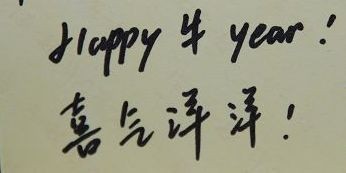 Happy 牛 year!
喜气洋洋!